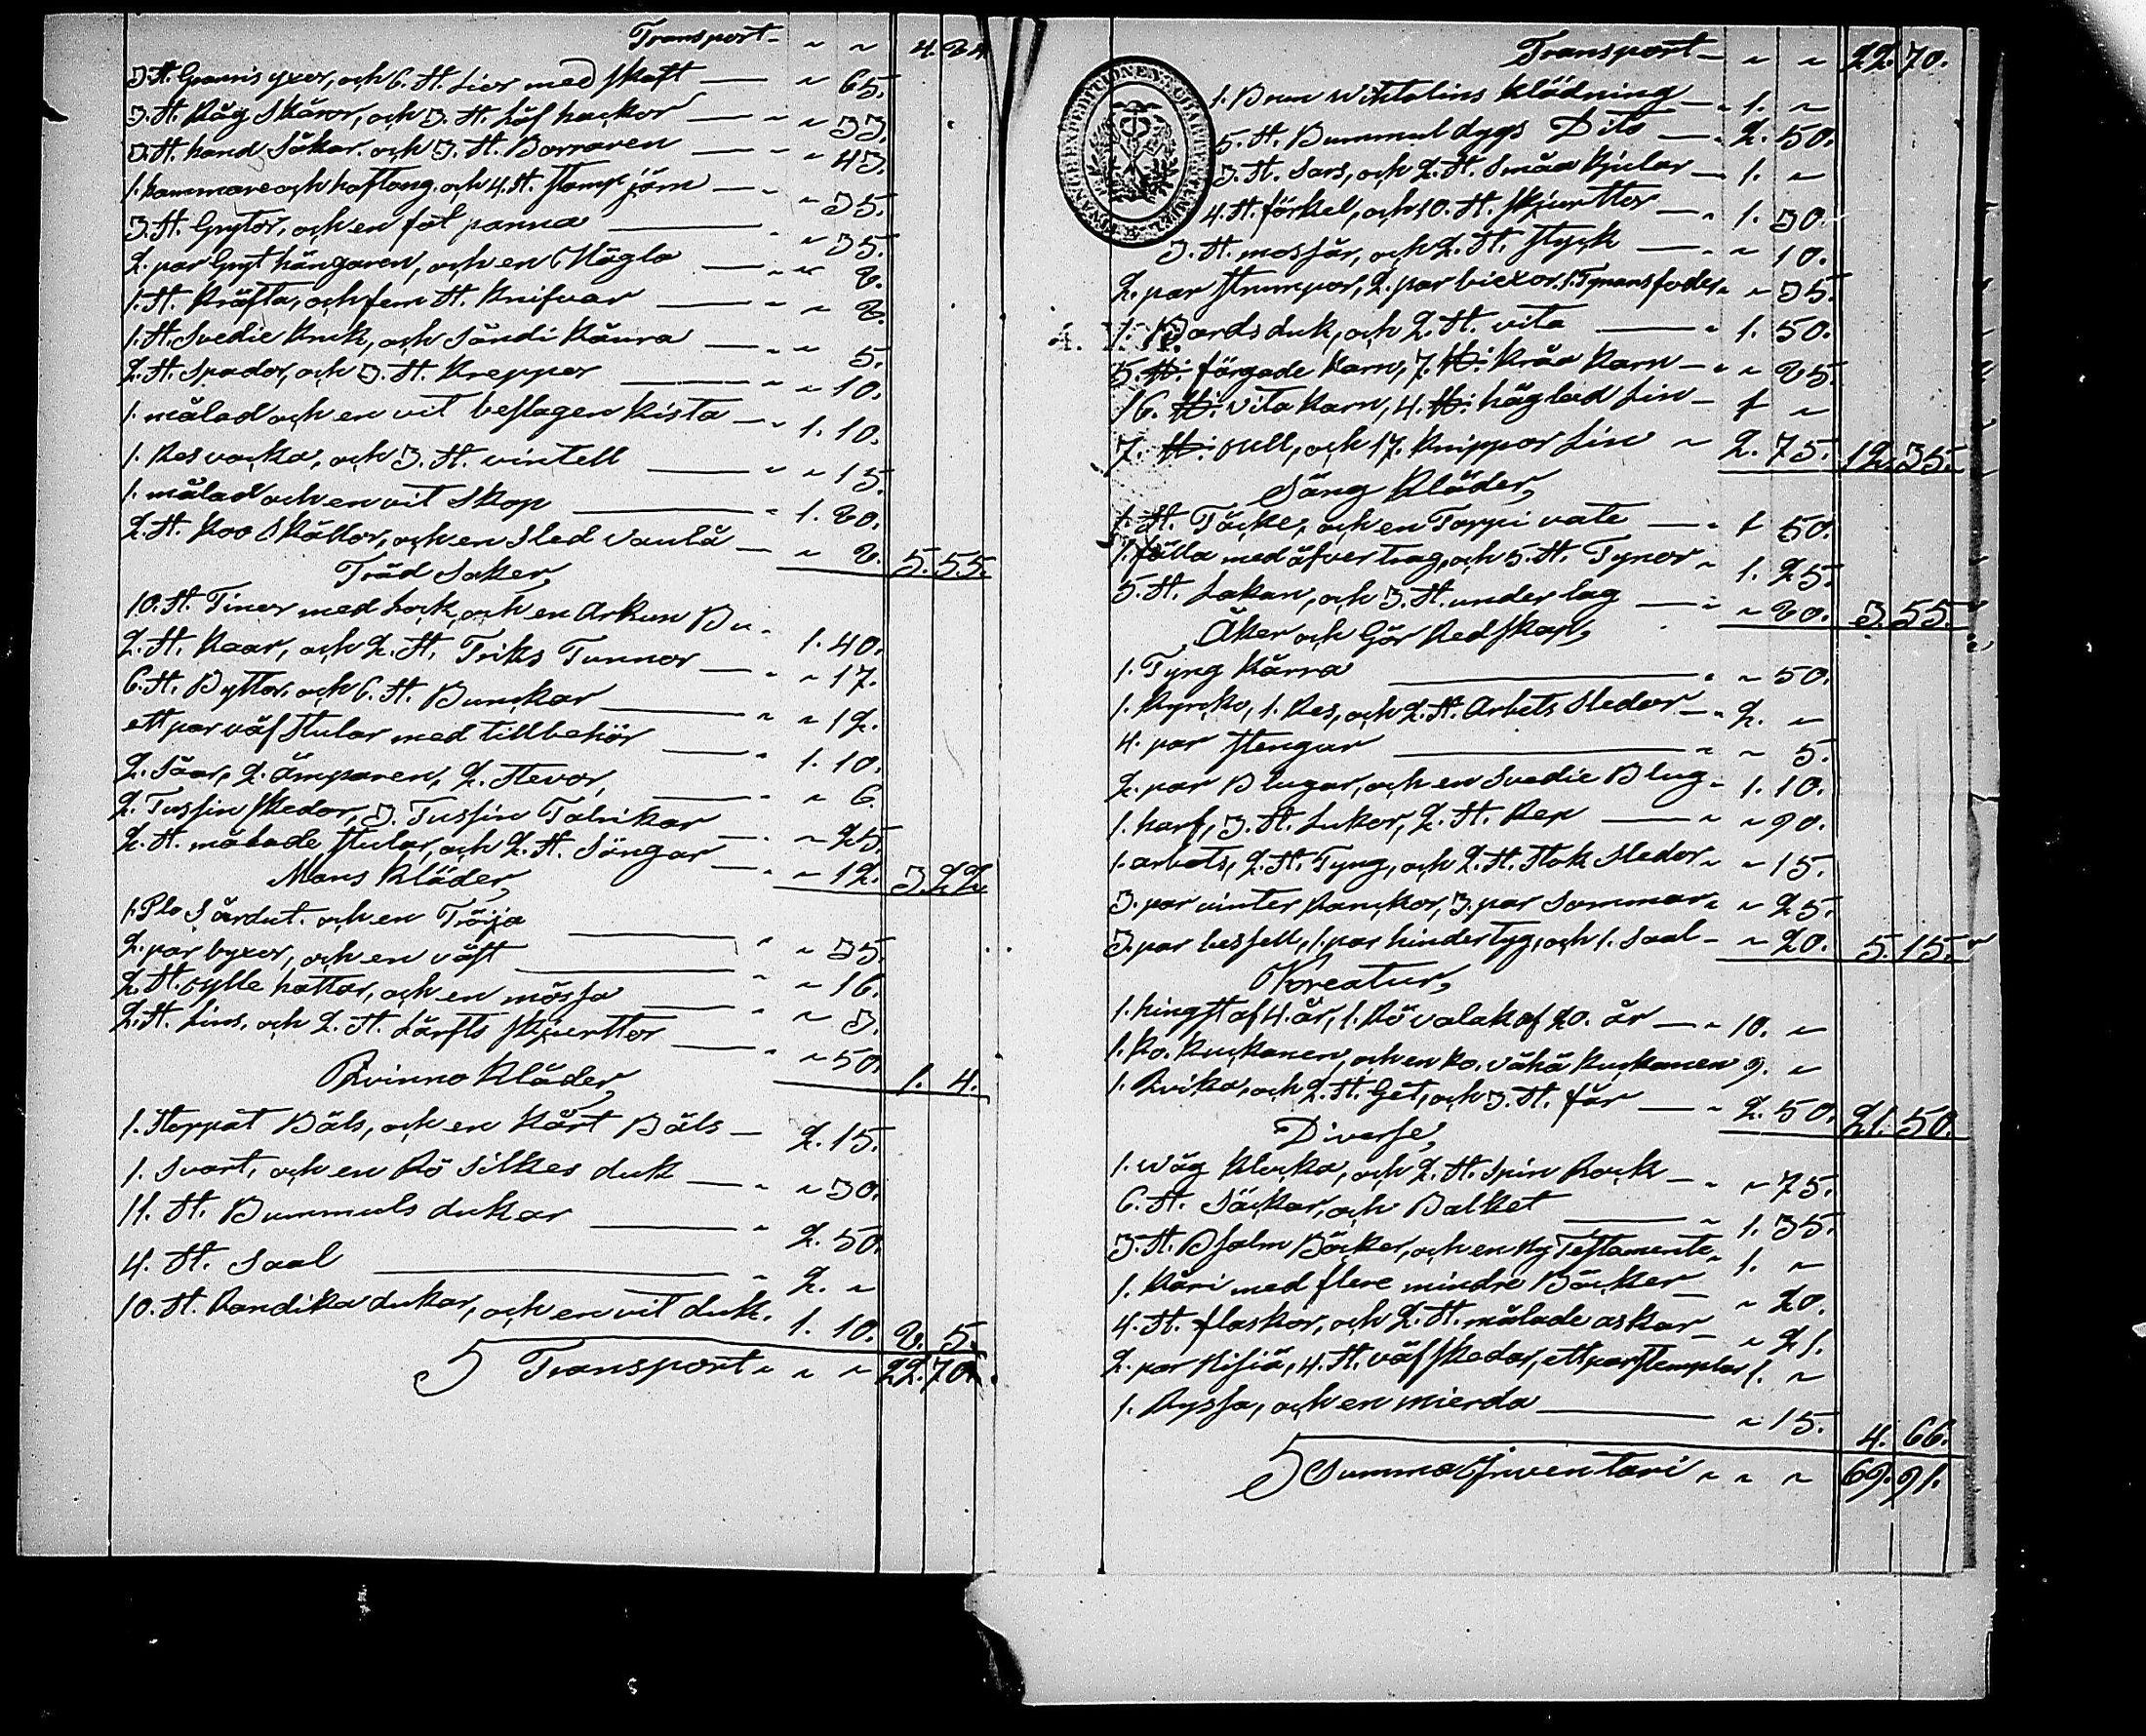 Transport " " 4. 84
3. st. Grannis yxor, och 6. st. Lior med skaft " 65.
3. st. Råg Skäror, och 3. st. Löf hackor " 33.
3. st. hand Såkar. och 3. st. Borraren " 43.
1. hammare och hoftong. och 4. st. stamp järn " 35.
3. st. Grytor, och en föt panna " 35.
2. par Gryt hängaren, och en Hägla " 8.
1. st. Kräfta, och fem st. Knifvar " 8.
1. st. Svedie Kruk, och Sändi Kärra " 5.
2. st. Spador, och 3. st. Krepper " 10.
1. målad och en vit beslagen Kista " 1. 10.
1. Res vacka, och 3. st. vintell " 15.
1. målad och en vit Skop " 1. 80.
2. st. Koo Skällor, och en Sled vaulå " 8. 5. 55.
Träd Saker,
10. st. Tinor med Lock, och en Arkun Bu 1. 40.
2. st. Kaar, och 2. st. Triks Tunnor " 17.
6. st. Byttor, och 6. st. Bunckar " 12.
ett par väf Stular med tillbehör 1. 10.
2. Såar, 2. Ämparen, 2. Stevor, " 6.
2. Tussin Skedar, 3. Tussin Talrikar " 25.
2. st. målade stular, och 2. st. Söngar " 12. 3. 22.
Mans Kläder,
1. Plo Sürdut. och en Tröja " 35.
2. par byxor, och en väst " 16.
2. st. sylle hattar, och en mössa " 3.
2. st. Lins, och 2. st. Lärfts skjurttor " 50. 1. 4.
Qvinno Kläder,
1. Steppat Päls, och en Kårt Päls 2. 15.
1. Svart, och en Rö Silkes duk " 30.
11. st. Bummuls dukar 2. 50.
4. st. Saal 2. "
10. st. Randika dukar, och en vit duk. 1. 10. 8. 5.
S Transport " " " 22. 70.
Transport " " 22. 70.
1. Brun Wiktolins Klädning 1. "
5. st. Bummul dygs Dito 2. 50.
3. st. Sars, och 2. st. Småa Kjular 1. "
4. st. förkel, och 10. st. skjurttor 1. 30.
3. st. mossår, och 2. st. styck " 10.
2. par strumpor, 2. par biexor. 1. Tynans foder " 35.
1. Bords duk, och 2. st. vita 1. 50.
5. ℔: färgade Karn, 7. ℔: kråa Karn " 85.
16. ℔: vita Karn, 4. ℔: häglad Lin 1 "
7. ℔: Ull, och 17. Knippor Lin " 2. 75. 12. 35.
Säng Kläder,
1. st. Täcke, och en Toppi vate 1 50.
1. fälla med äfver trag, och 5. st. Tynor 1. 25.
5. st. Lakan, och 3. st. under lag " 80. 3. 55.
Åker och Gör Redskap,
1. Tyng Kärra " 50.
1. Kyrcko, 1. Res, och 2. st. Arbets Sledor 2. "
4. par stengur " 5.
2. par Blugar, och en Svedie Blug 1. 10.
1. harf, 3. st. Lukor, 2. st. Rep " 90.
1. arbets, 2. st. Tyng, och 2. st. Stok Sledor " 15.
3. par vinter Ranckor, 3. par Sommar " 25.
3. par bessell, 1. par hinder tyg, och 1. Saal " 20. 5. 15.
Kreatur,
1. hingst af 4. år, 1. Rö valak af 20. år 10. "
1. Ko. Kuckanen, och en ko. vähä Kuckanen 9. "
1. Qvika, och 2. st. Get, och 3. st. får 2. 50. 21. 50.
Diverse,
1. Wäg Klocka, och 2. st. Spin Rock " 75.
6. st. Säckar, och Balket 1. 35.
3. st. Psalm Böcker, och en Ny Testamente 1. "
1. Kåri med flere mindre Böcker " 20.
4. st. flaskor, och 2. st. målade askar " 21.
2. par Kisiä, 4. st. väf skedar, ett par stemplar 1. "
1. Ryssa, och en mierda " 15. 4. 66.
S Summa Inventari " " " 69. 91.